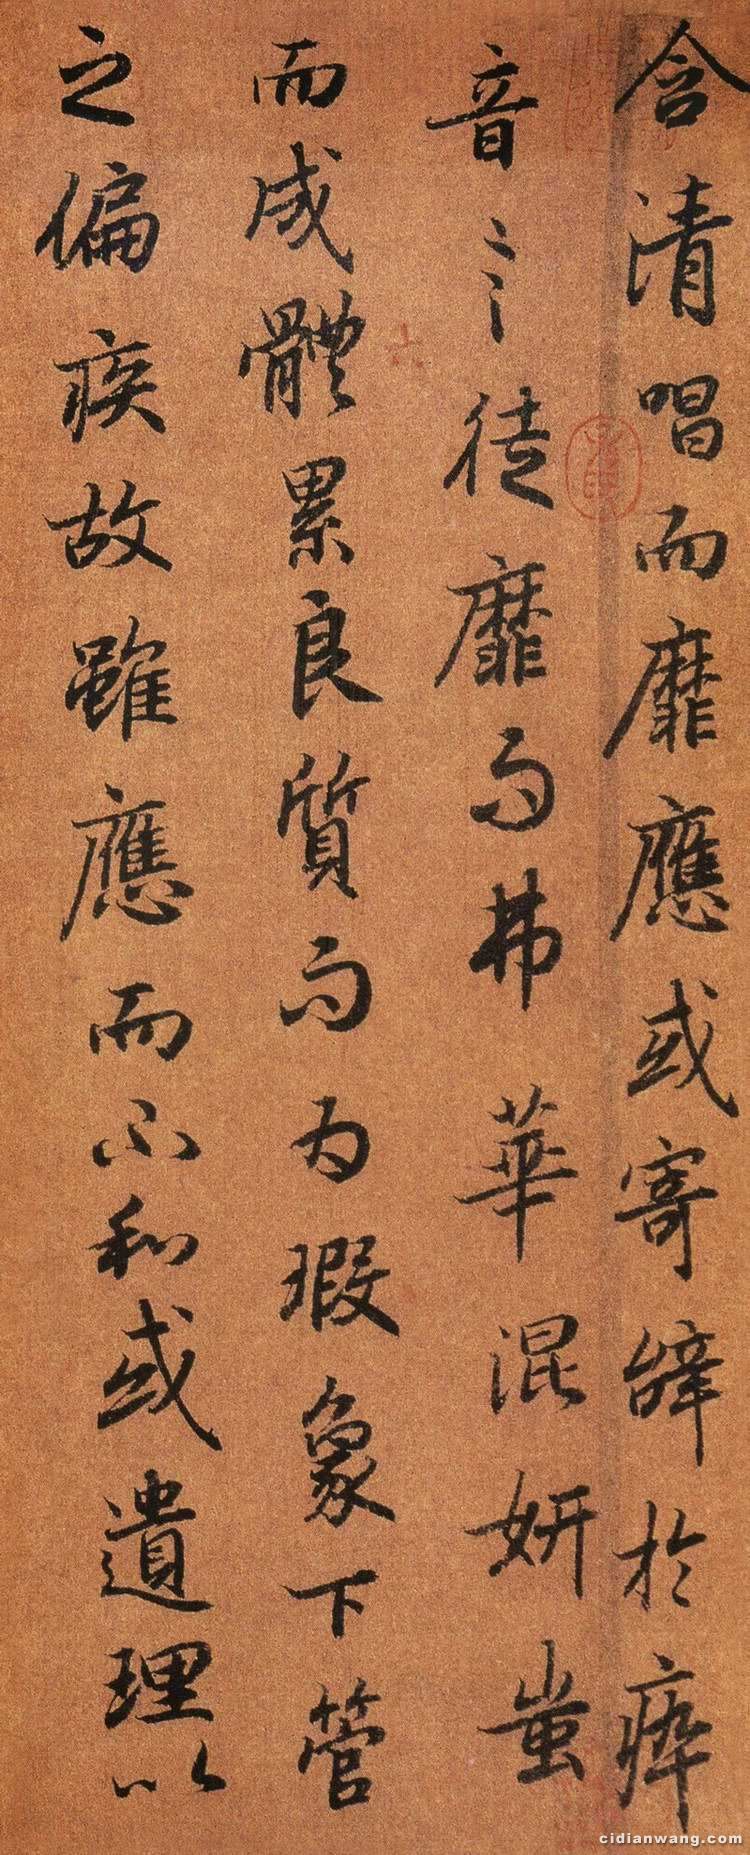 含清唱而靡應或寄辭於瘁
音言徒靡而弗華混妍蚩
而成體累良質而為瑕象下管
之偏疾故雖應而不和或遺理以
cidianwang.com